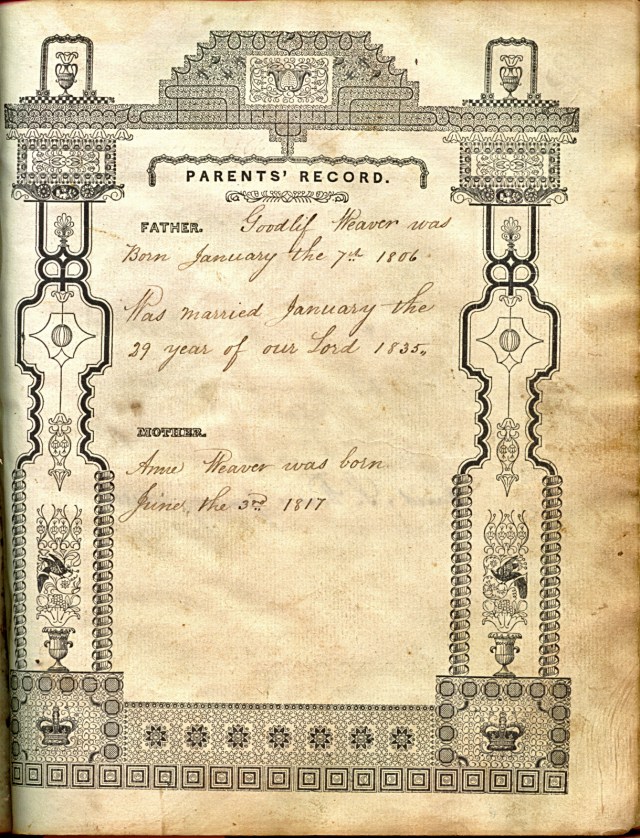 PARENTS' RECORD.
FATHER. Goodlif Weaver was
Born January the 7th 1806
Was married January the
29 year of our Lord 1835.
MOTHER.
Anne Weaver was born
June, the 3rd 1817